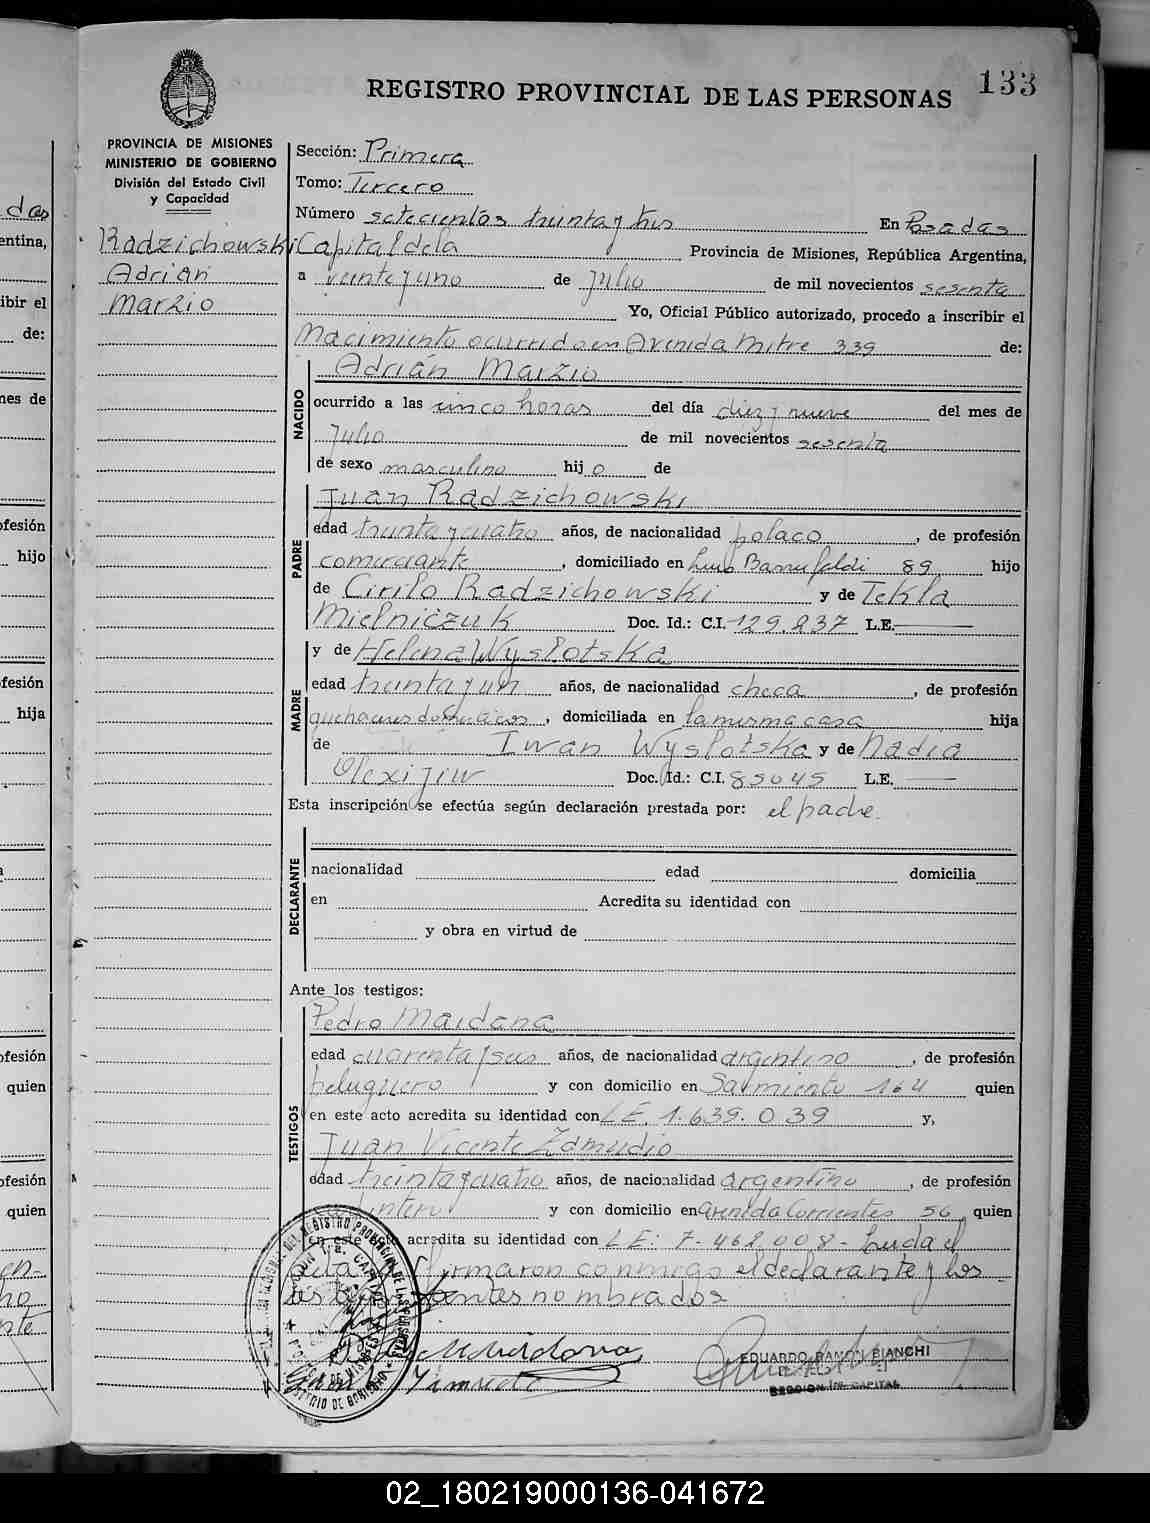 133
REGISTRO PROVINCIAL DE LAS PERSONAS
PROVINCIA DE MISIONES
MINISTERIO DE GOBIERNO
División del Estado Civil
y Capacidad
Radzichowski
Adrián
Marzio
Sección: Primera
Tomo: Tercero
Número setecientos treinta y tres En Posadas
Capital de la Provincia de Misiones, República Argentina,
a veinte y uno de Julio de mil novecientos sesenta
Yo, Oficial Público autorizado, procedo a inscribir el
Nacimiento ocurrido en Avenida Mitre 339 de:
NACIDO
Adrián Marzio
ocurrido a las cinco horas del día diez y nueve del mes de
Julio de mil novecientos sesenta
de sexo masculino hijo de
PADRE
Juan Radzichowski
edad treinta y cuatro años, de nacionalidad polaco, de profesión
comerciante, domiciliado en 89 hijo
de Cirilo Radzichowski y de Tekla
Mielniczuk Doc. Id.: C.I. 129.237 L.E.
MADRE
y de Helena Wyslotska
edad treinta y un años, de nacionalidad checa, de profesión
quehaceres domesticos, domiciliada en la misma casa hija
de Iwan Wyslotska y de Nadia
Olexijiw Doc. Id.: C.I. 85045 L.E.
Esta inscripción se efectúa según declaración prestada por: el padre.
DECLARANTE
nacionalidad edad domicilia
en Acredita su identidad con
y obra en virtud de
Ante los testigos:
TESTIGOS
Pedro Maidana
edad cuarenta y seis años, de nacionalidad argentino, de profesión
peluquero y con domicilio en Sarmiento 164 quien
en este acto acredita su identidad con LE. 1.639.039 y,
Juan Vicente Zamudio
edad treinta y cuatro años, de nacionalidad argentino, de profesión
y con domicilio en avenida Corrientes 56 quien
en este acto acredita su identidad con LE: 7.462.008- Leida el
acta firmaron conmigo el declarante y los
testigos antes nombrados
EDUARDO RAMON BIANCHI
SECCION 1ra. CAPITAL
02_180219000136-041672